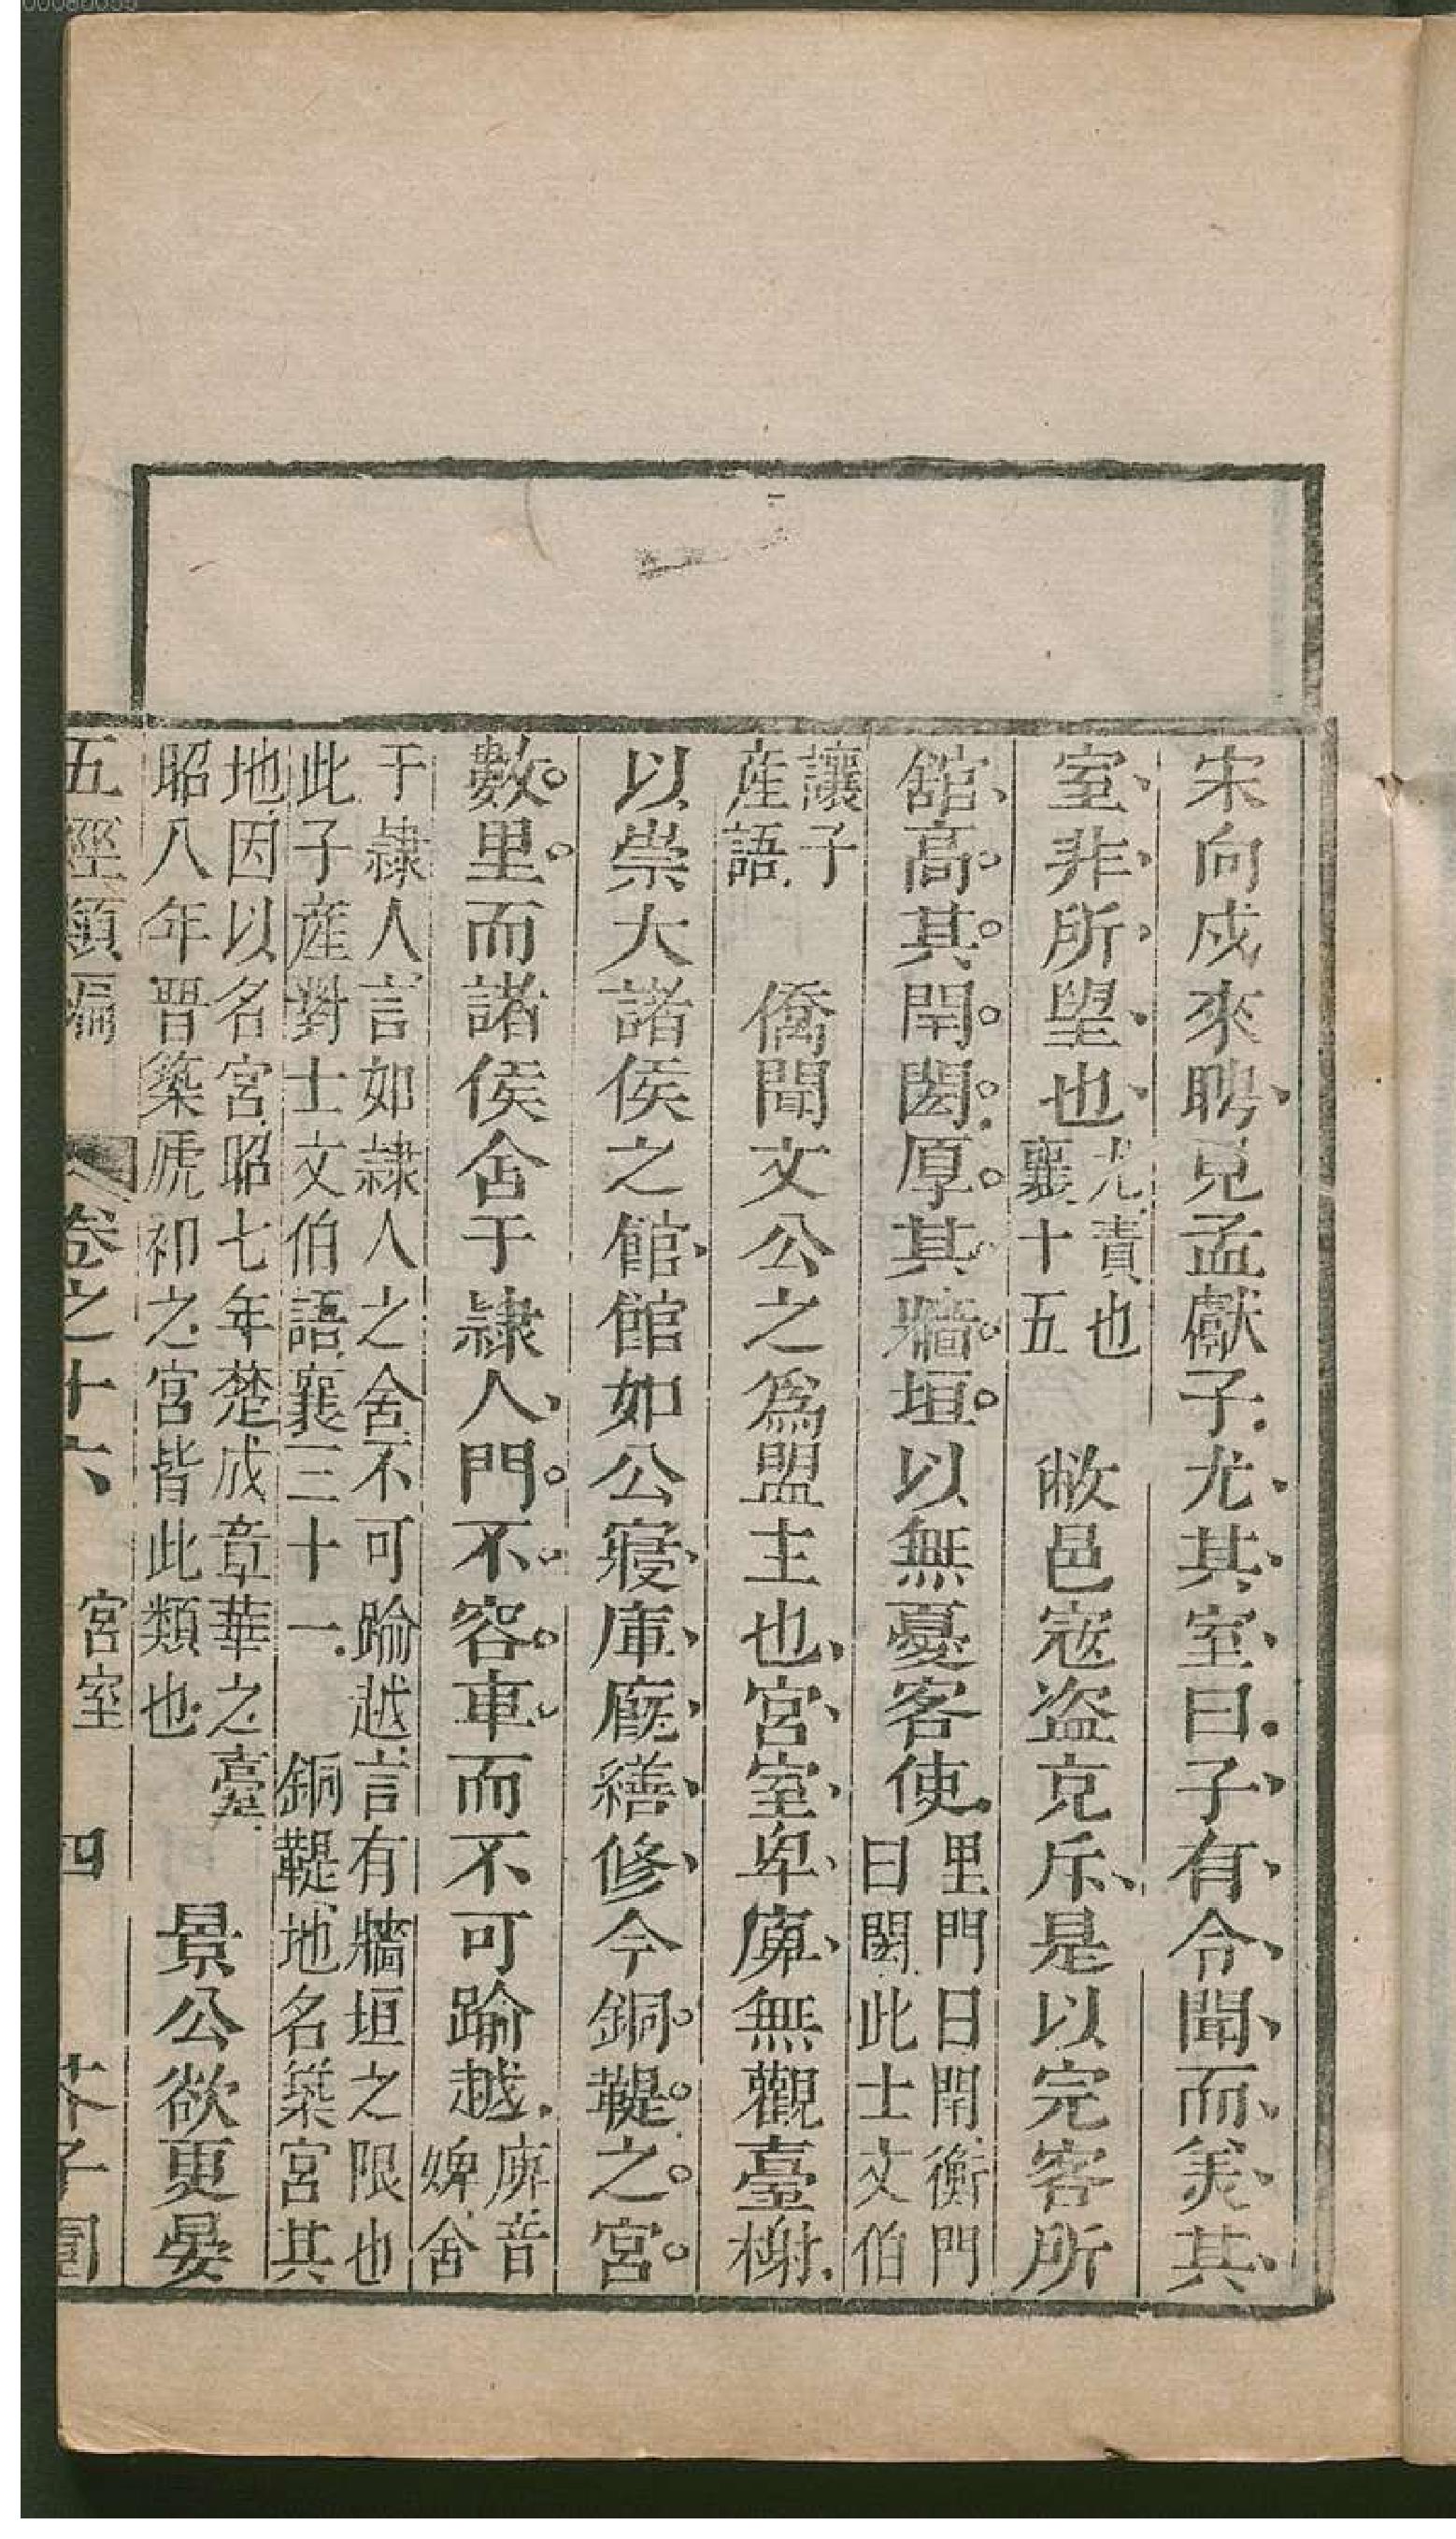 宋向戌來聘見孟獻子尤其室曰子有令聞而美其
室非所望也尤責也襄十五 敝邑寇盗克斥是以完客所
舘高其閈閎厚其墻垣以無憂客使里門曰閈衡門曰閎此士文伯
讓子産語 僑聞文公之爲盟主也宮室卑庳無觀臺榭
以崇大諸侯之館館如公寢庫廐繕修今銅鞮之宮
數里而諸侯舍于隷人門不容車而不可踰越庳音婢舍
于隷人言如隷人之舍不可踰越言有牆垣之限也
此子産對士文伯語襄三十一 銅鞮地名築宮其
地因以名宮昭七年楚成章華之臺
昭八年晋築虒祁之宮皆此類也 景公欲更晏
五經類編 卷之十六 宮室 四 芥子園